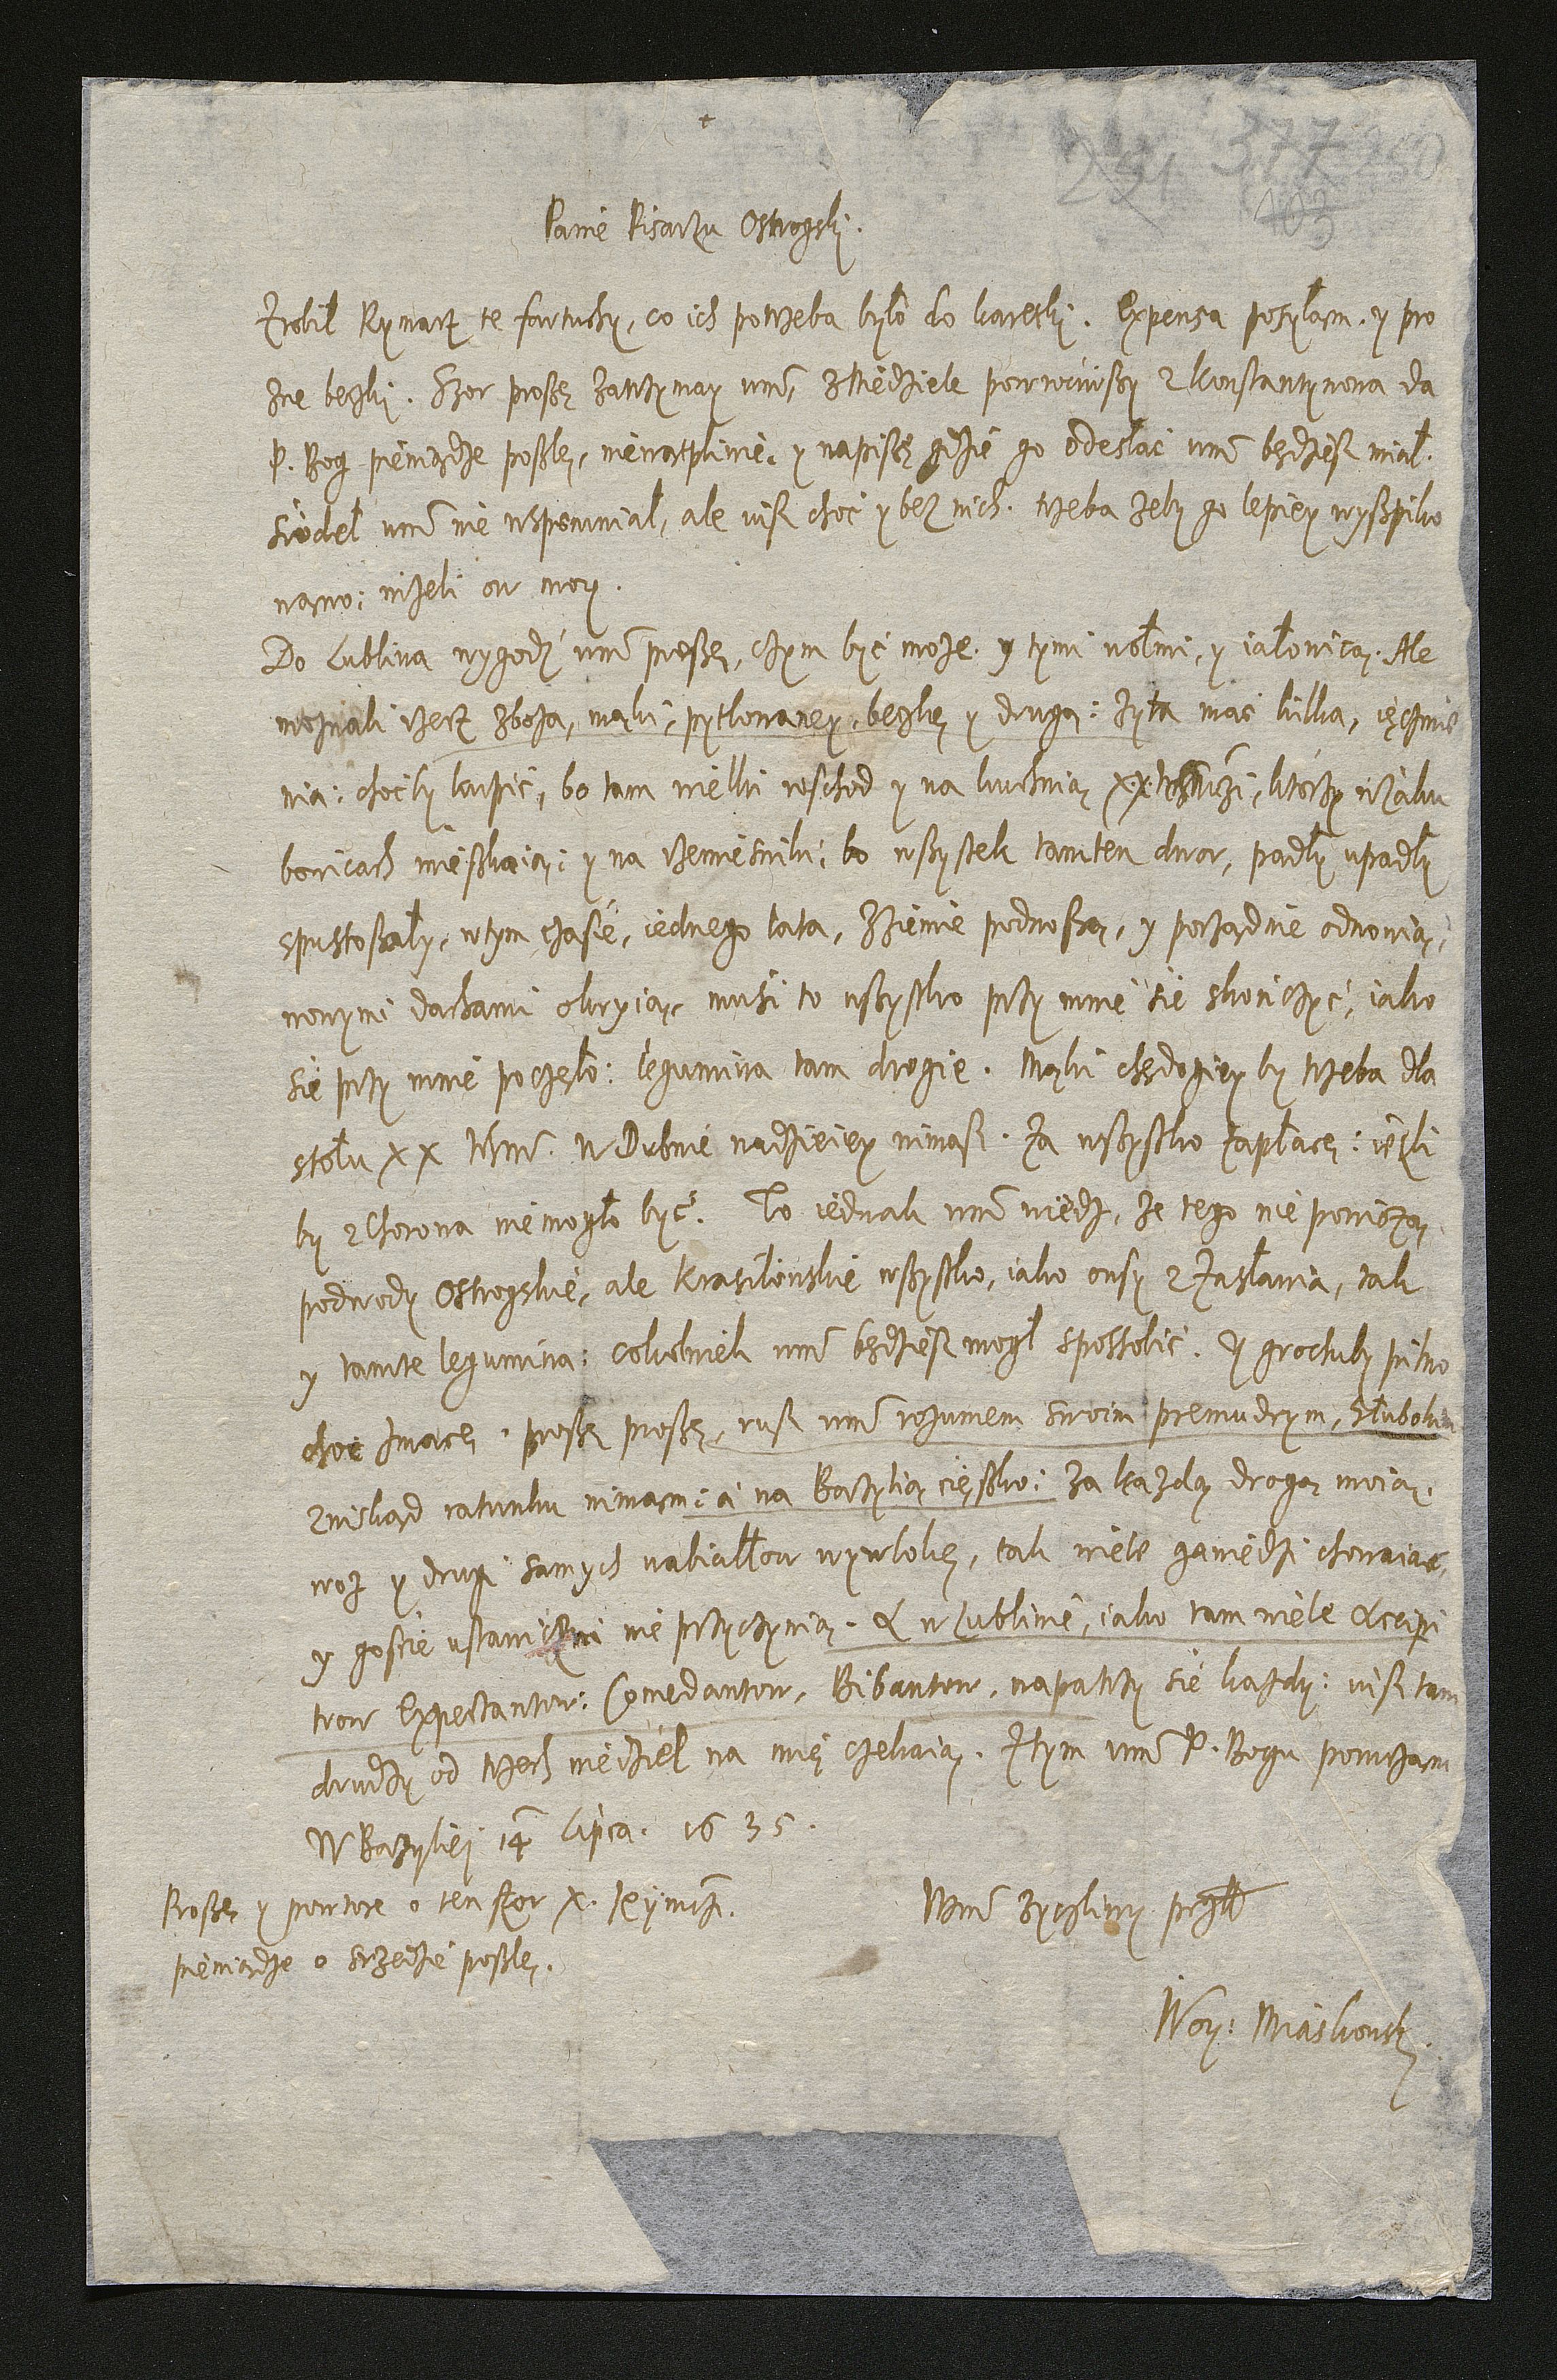 +
377 250
251 403
Panie Pisarzu Ostrogski.
Zrobił Rymarz te fartuchy, co ich potrzeba było do karetki. Expensa posyłam. y pro
zne beczki. Szor proszę zatrzymay wm̃, z Niedziele powrociwszy z Konstantynowa da
P. Bog pieniądze poszlę, niewątpliwie. y napiszę gdzie go odesłać wm̃ będziesz miał.
siodeł wm̃ nie wspomniał, ale wisz choć y bez nich. trzeba żeby go lepiey wyszpiko
wano: niżeli ow moy.
Do Lublina wygodź wm̃ proszę, czym być może. y tymi wołmi, y iałowicą. Ale
możnali rzecz zboża, mąki, pytlowaney, beczkę y drugą: żyta mac kilka, ięczmie
nia: choćby kupić, bo tam wielki roschod y na kuchnią xx. którzy w Jaku
bowicach mieszkaią: y na rzemieśniki; bo wszystek tamten dwor, padły upadły
spustoszały, w tym czasie, iednego lata, z ziemie podnoszą, y porządnie odnowią,
nowymi dachami okryią, musi to wszystko przy mnie się skończyć, iako
się przy mnie poczęło: legumina tam drogie. Mąki chędogiey by trzeba dla
stołu xx W Dubnie nadzieiey nimasz. Za wszystko zapłacę: ieśli
by z Chorowa nie mogło być. To iednak wm̃ wiedz, że tego nie powiozą
podwody Ostrogskie, ale Krasiłowskie wszystko, iako owsy z Zasławia, tak
y tamte legumina: cokolwiek wm̃ będziesz mogł sposobić. Y grochuby pilno
choć z macę. proszę proszę, rusz wm̃ rozumem swoim premudrym, Hłubokim
znikąd ratunku nimam: a na Bazylią ciężko: za każdą drogą moią.
woz y drugi samych nabiałow wywlokę, tak wiele gawiedzi chowaiąc,
y goście ustawiczni nie przyczynią. A w Lublinie, iako tam wiele Accipi
trow Expectantow: Comedantow, Bibantow, napatrzy się każdy: wisz tam
drudzy od trzech niedziel na mię czekaią. Ztym wm̃ P. Bogu poruczam
W Bazyliej 14 Lipca. 1635.
Proszę y powtore o ten szor X.
pieniądze o srzedzie poszlę.
Wm̃ życzliwy
Woy: Miaskowski.